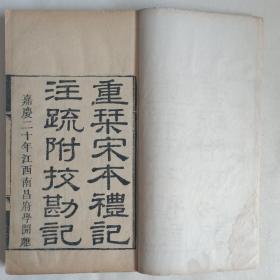 重栞宋本禮記
注疏附挍勘記
嘉慶二十年江西南昌府學開雕